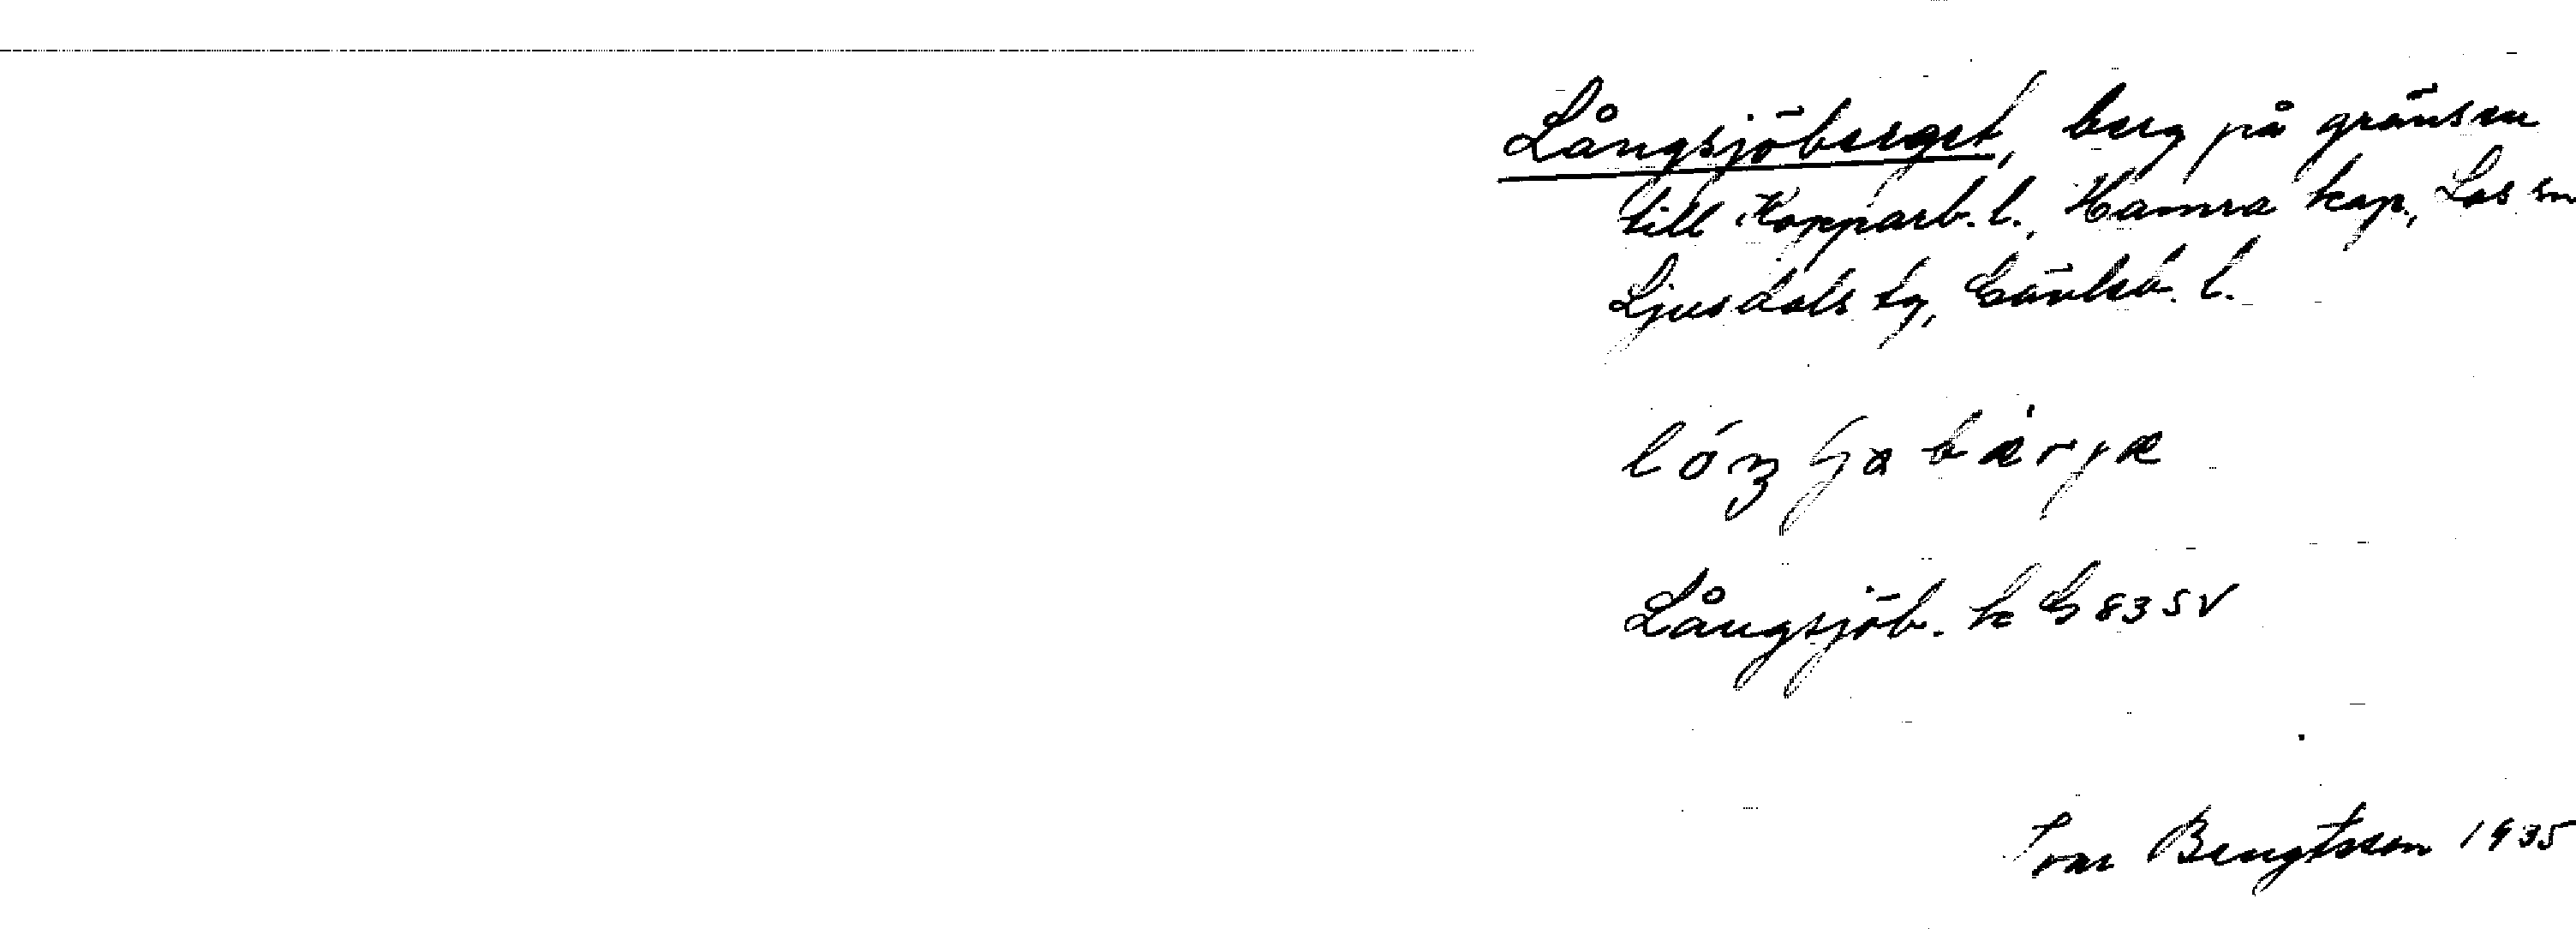 Långsjöberget, berg på gränsen
till Kopparb. l., Hamra kap., Los sn
Ljusdals tg, Gävleb. l.
Långsjöb. k G 83 SV
Ivar Bengtsson 1935